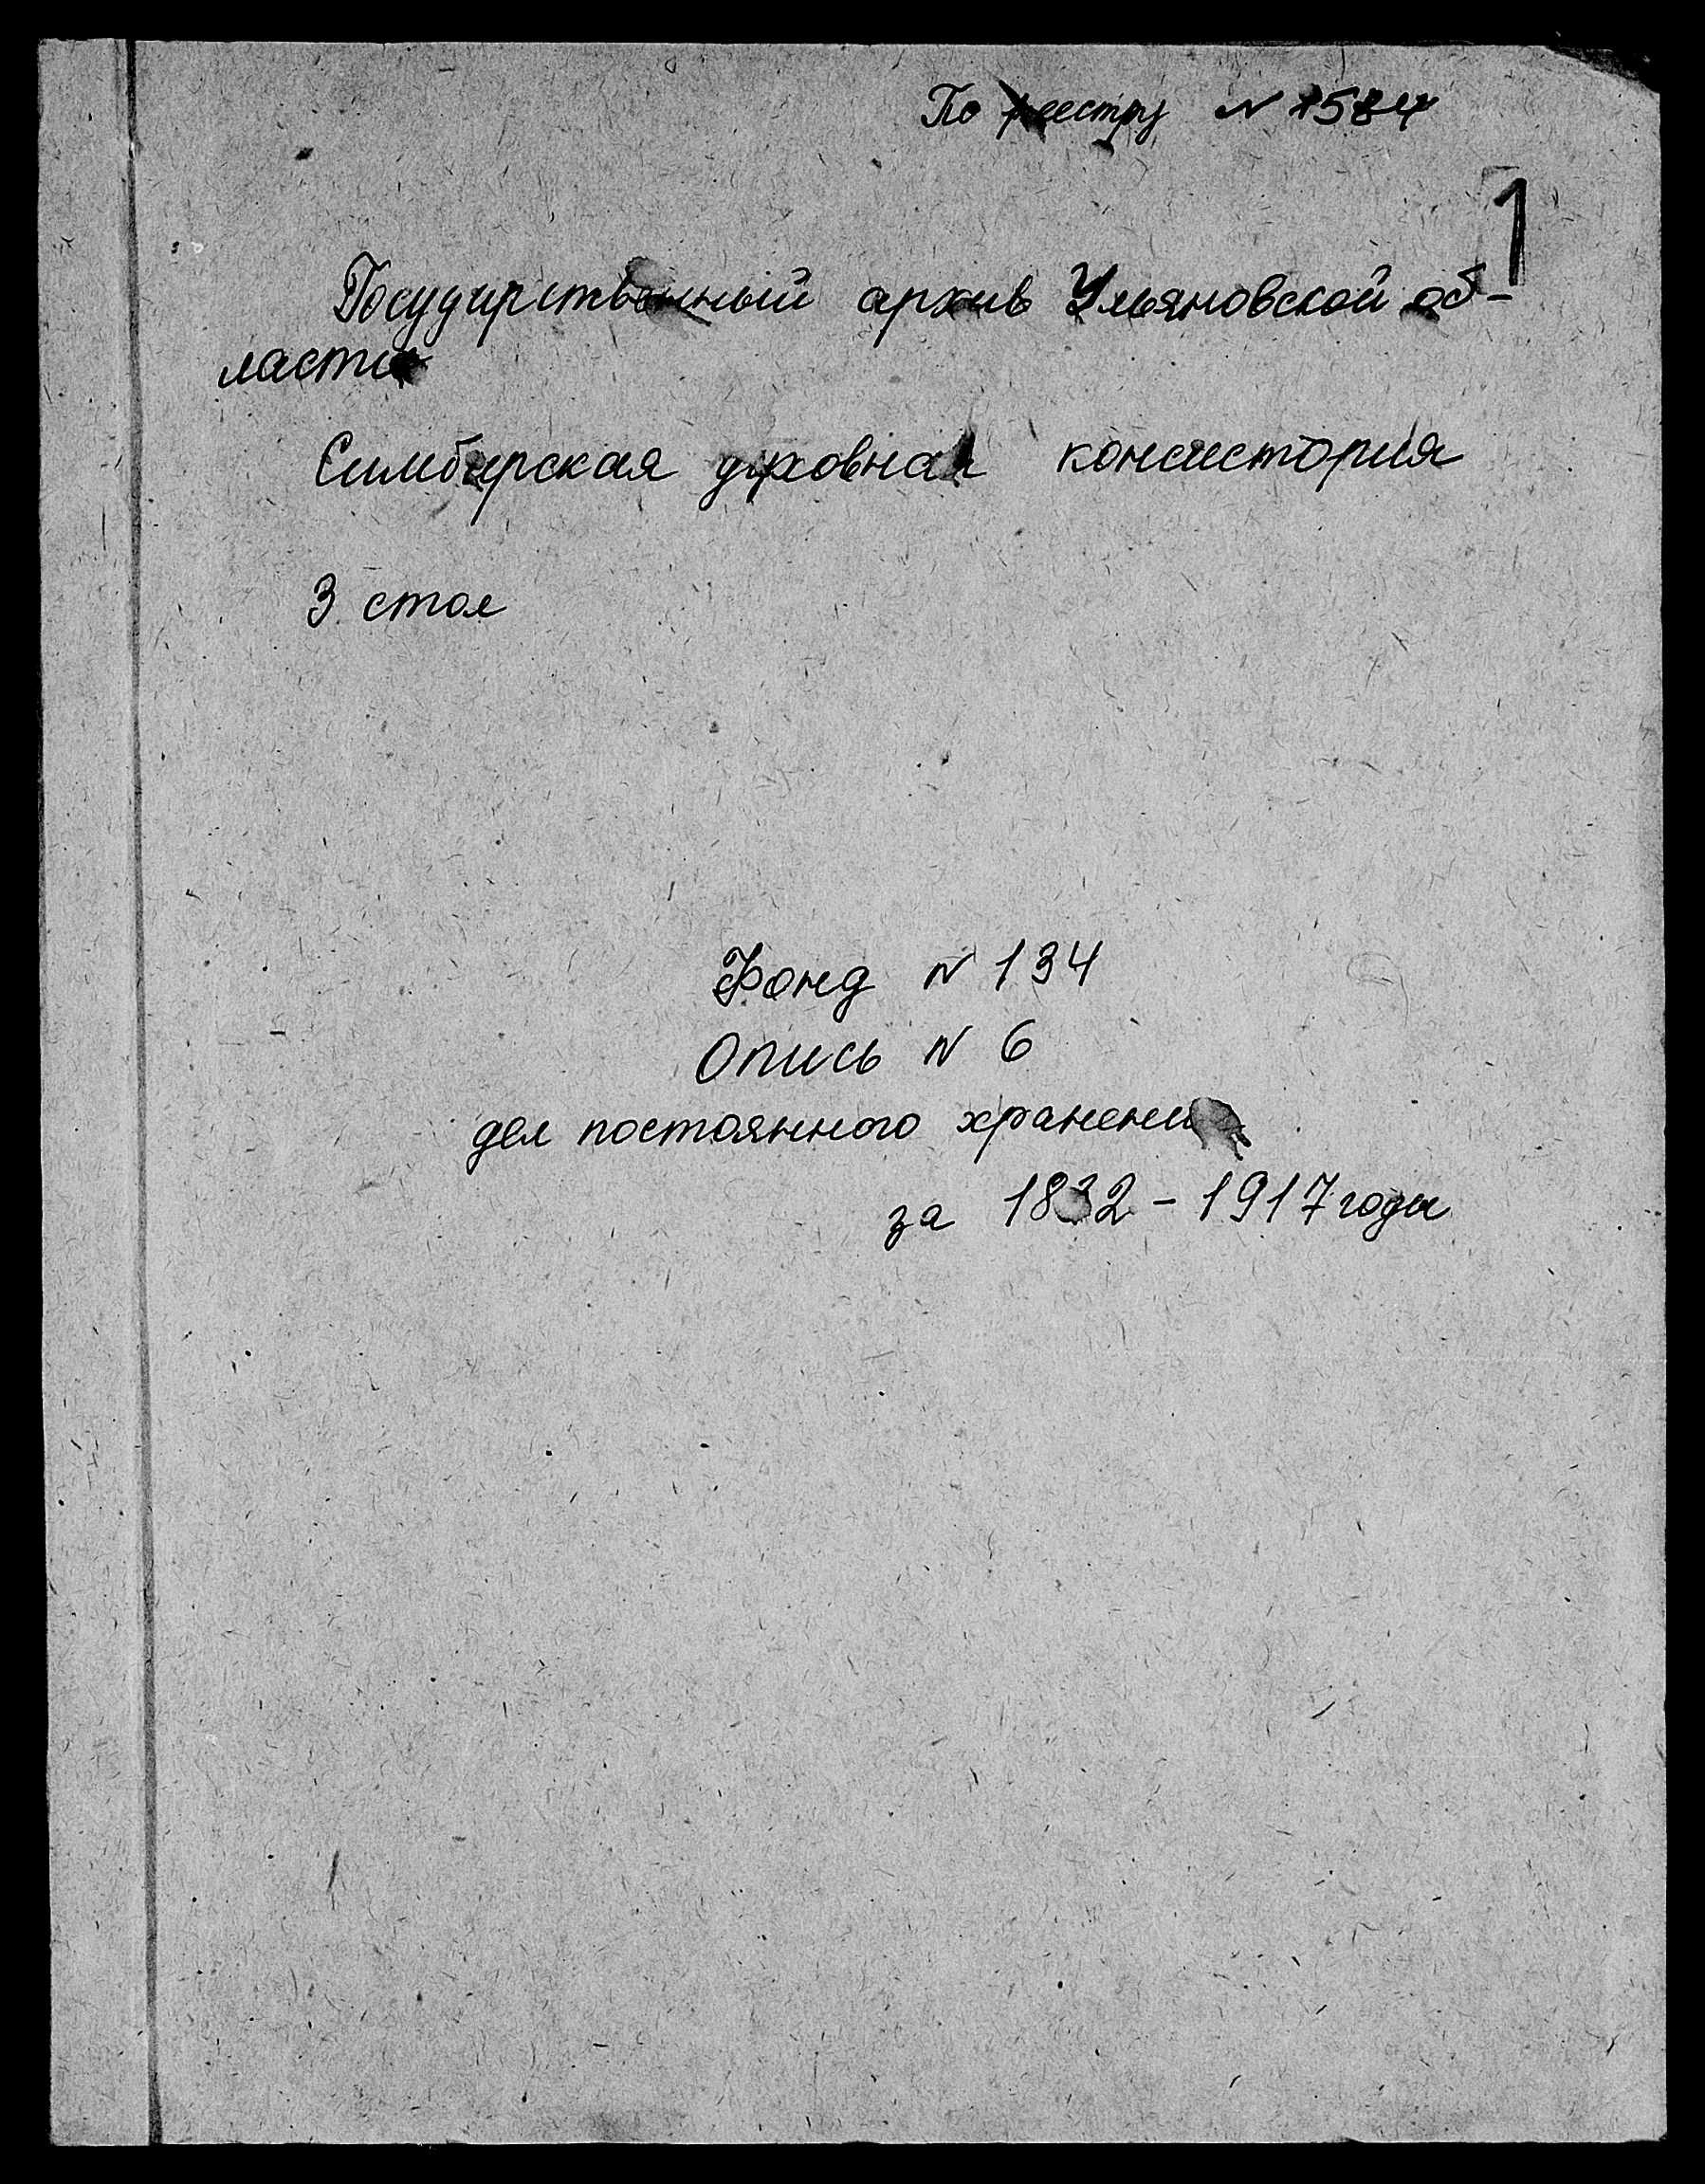 По реестру N 1584
1
Государственный архив Ульяновской об-
ласти
Симбирская духовная консистория
3 стол
Фонд N 134
Опись N 6
дел постоянного хранения
за 1832 - 1917 годы